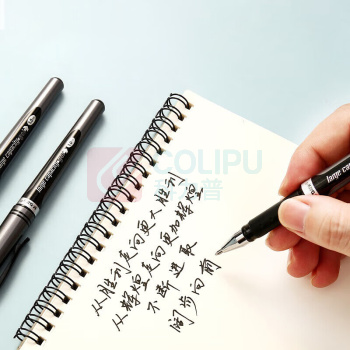 从胜利走向更大胜利
从辉煌走向更加辉煌
不断进取
阔步向前
COLIPU
科力普
large capacity
large capacity
large ca